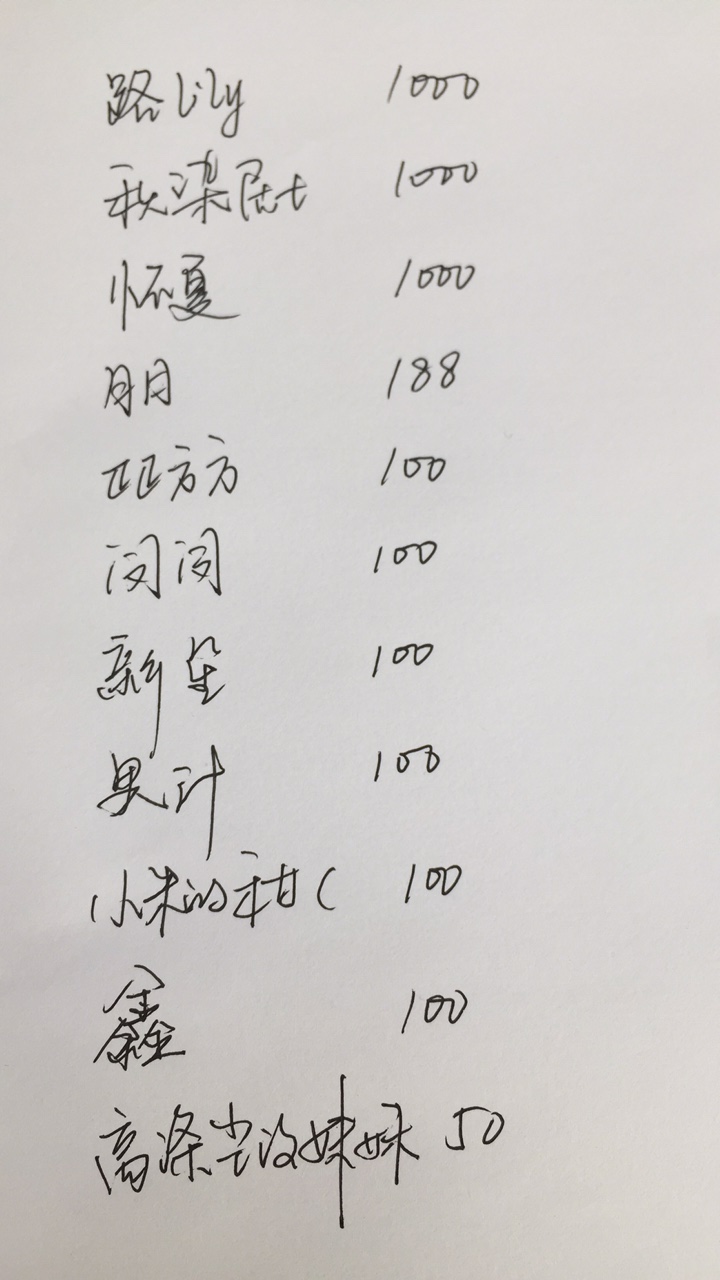 路Lily 1000
秋染居士 1000
怀夏 1000
月日 188
匹匹方方 100
闵闵 100
新星 100
果汁 100
小朱的 100
鑫 100
高 妹妹 50